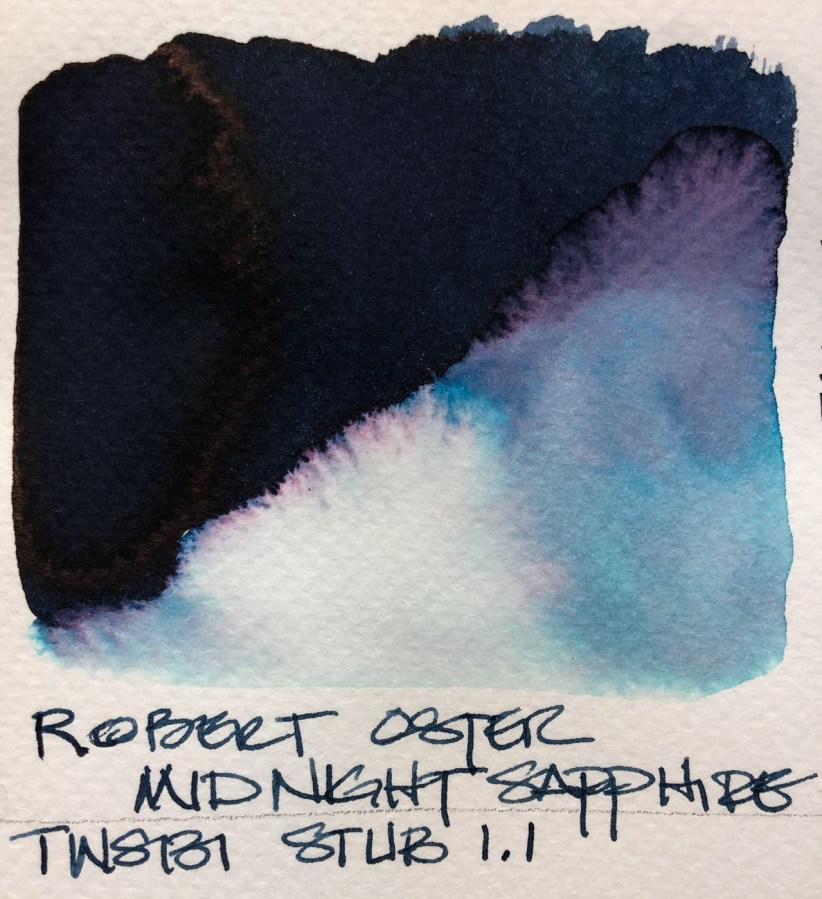 ROBERT OSTER
MIDNIGHT SAPPHIRE
TWSBI STUB 1.1